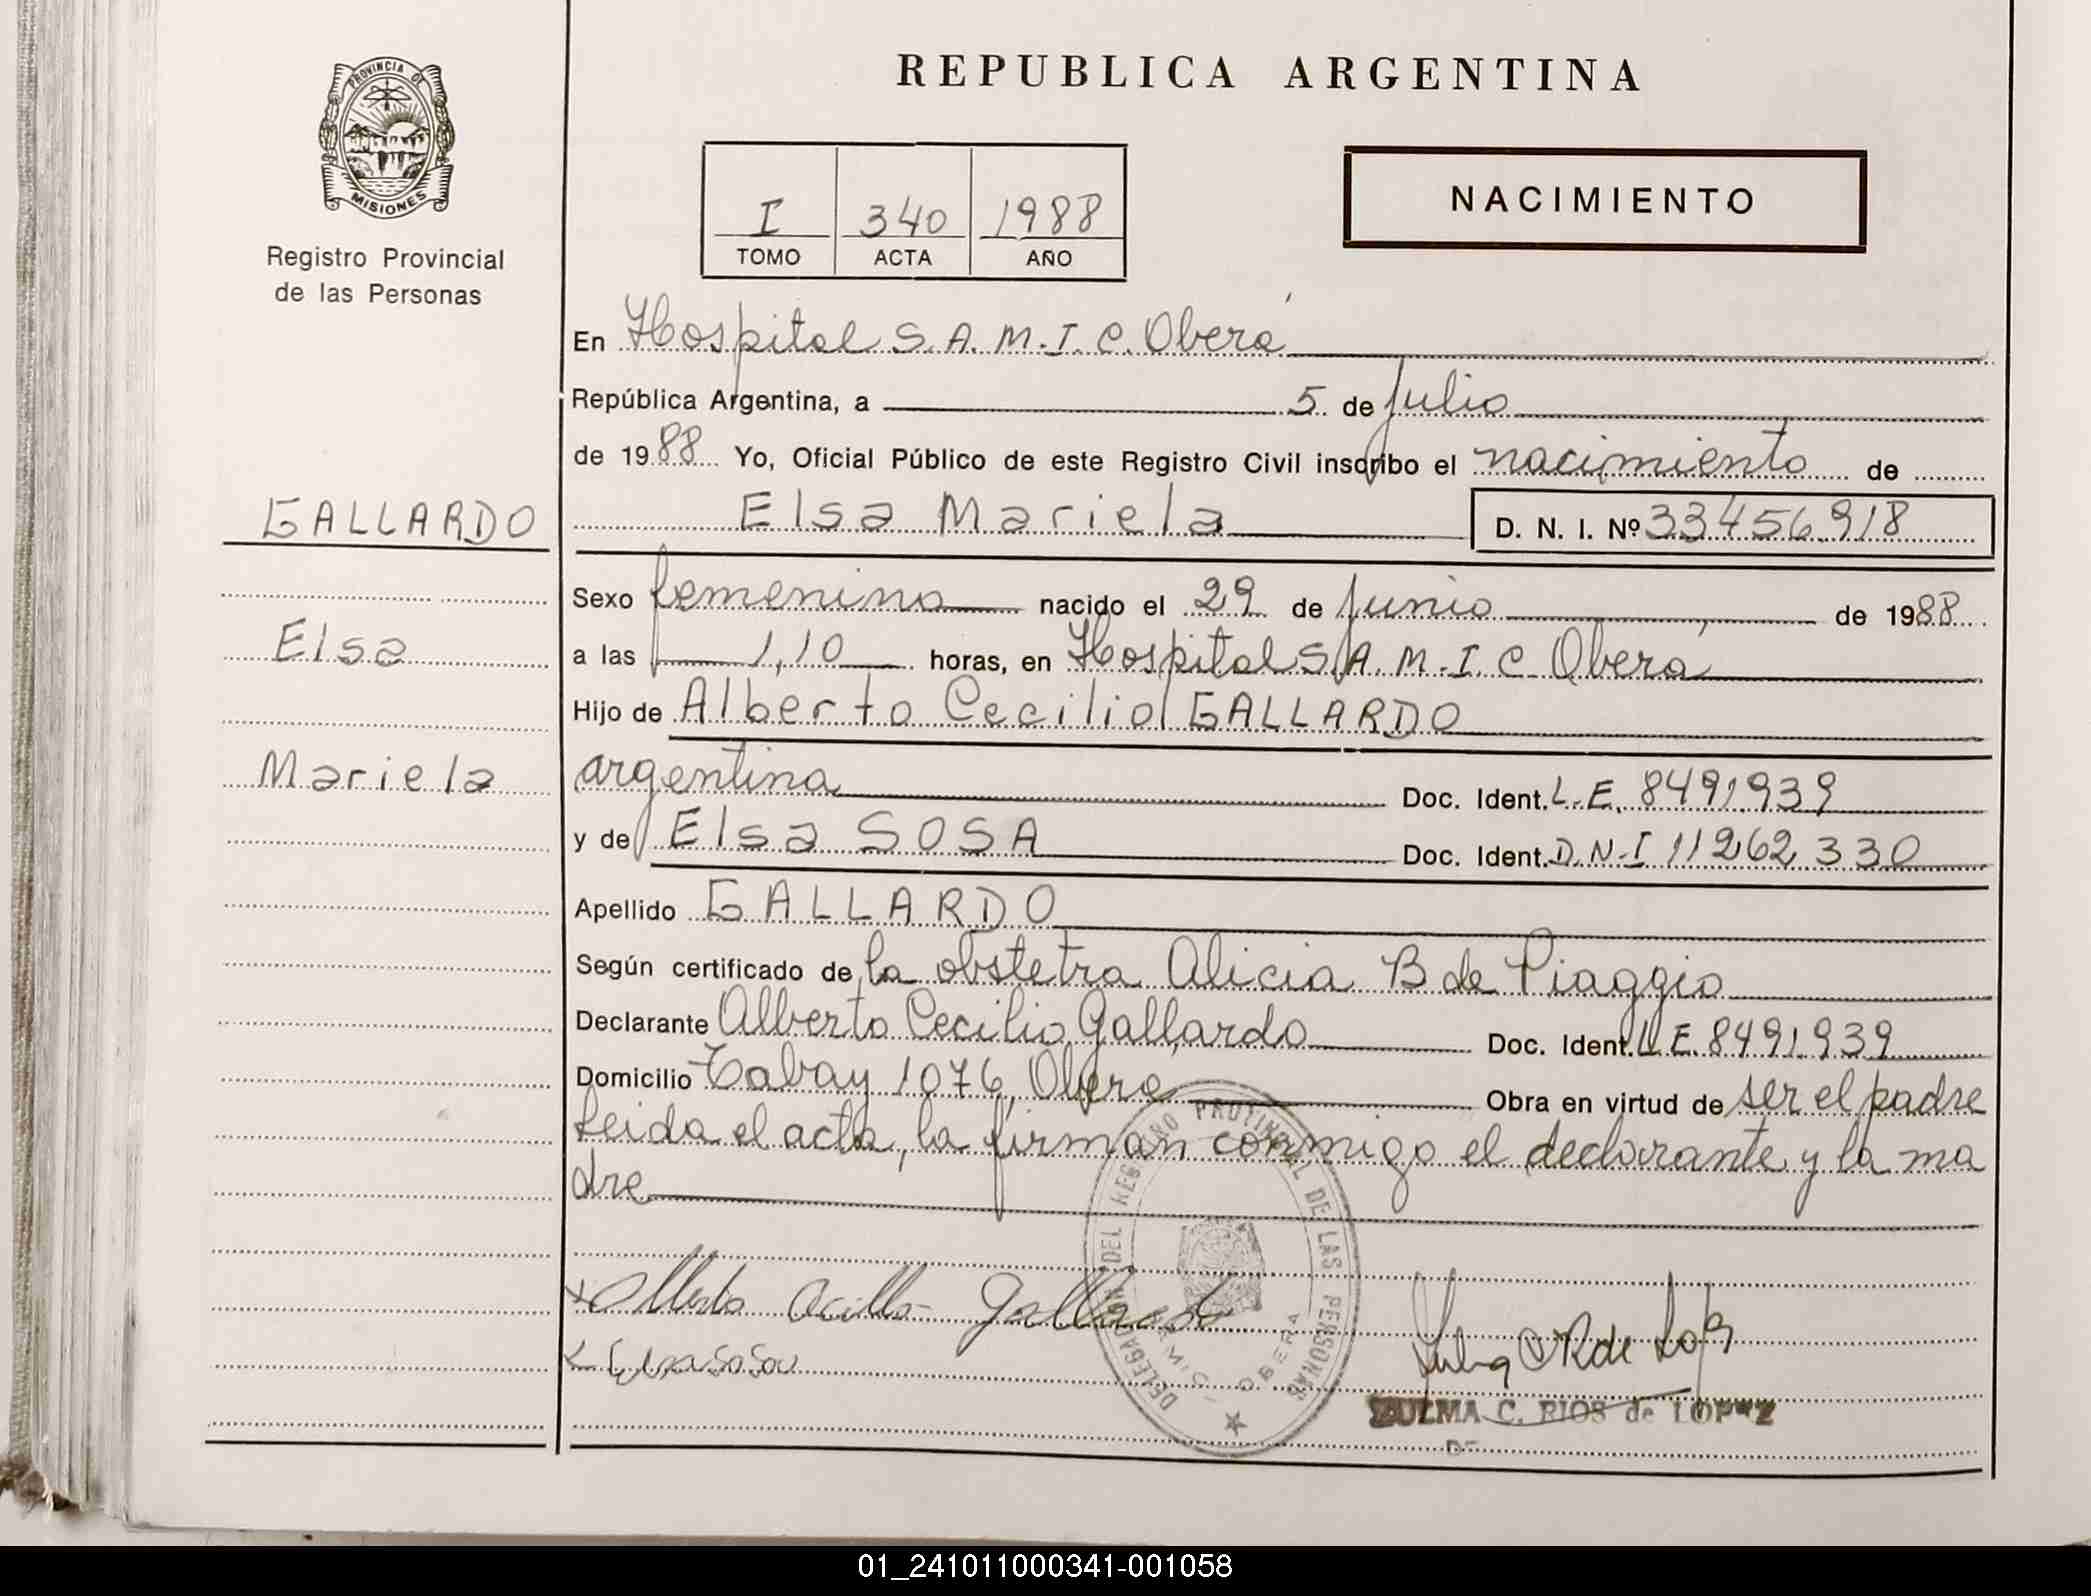 REPUBLICA ARGENTINA
PROVINCIA DE
MISIONES
Registro Provincial
de las Personas
I 340 1988
TOMO ACTA AÑO
NACIMIENTO
En Hospital S.A.M.I.C. Oberá
República Argentina, a 5 de julio
de 1988 Yo, Oficial Público de este Registro Civil inscribo el nacimiento de
GALLARDO
Elsa Mariela D. N. I. Nº 33456918
Sexo femenino nacido el 29 de junio de 1988
Elsa
a las 1,10 horas, en Hospital S.A.M.I.C Oberá
Hijo de Alberto Cecilio GALLARDO
Mariela
argentina Doc. Ident. L.E. 8491939
y de Elsa SOSA Doc. Ident. D.N.I 11262330
Apellido GALLARDO
Según certificado de la obstetra Alicia B de Piaggio
Declarante Alberto Cecilio Gallardo Doc. Ident. L E 8491939
Domicilio Tabay 1076, Oberá Obra en virtud de ser el padre
Leida el acta, la firman conmigo el declarante y la ma
dre
DEL REGISTRO PROVINCIAL DE LAS PERSONAS
OBERA
Gallardo
Elsa Sosa
ZULMA C. RIOS de LOPEZ
01_241011000341-001058